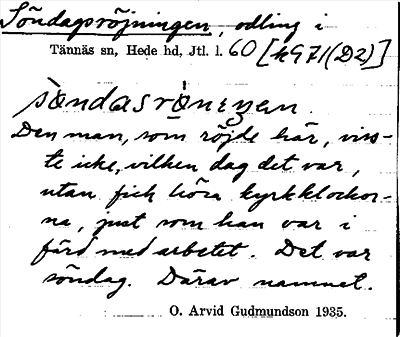 Söndagsröjningen, odling i
Tännäs sn, Hede hd, Jtl. l. 60 [kG71(D2)]
Den man, som röjde här, viss-
te icke, vilken dag det var,
utan fick höra kyrkklockor-
na, just som han var i
färd med arbetet. Det var
söndag. Därav namnet.
O. Arvid Gudmundson 1935.